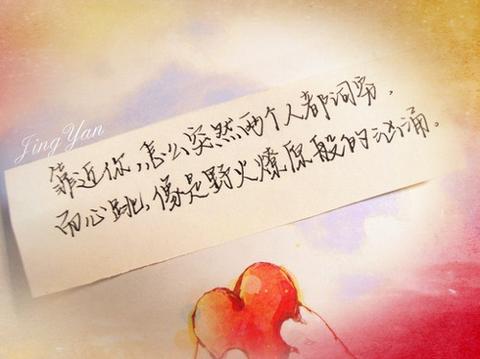 Jing Yan
靠近你,怎么突然两个人都词穷.
而心跳,像是野火燎原般的汹涌。